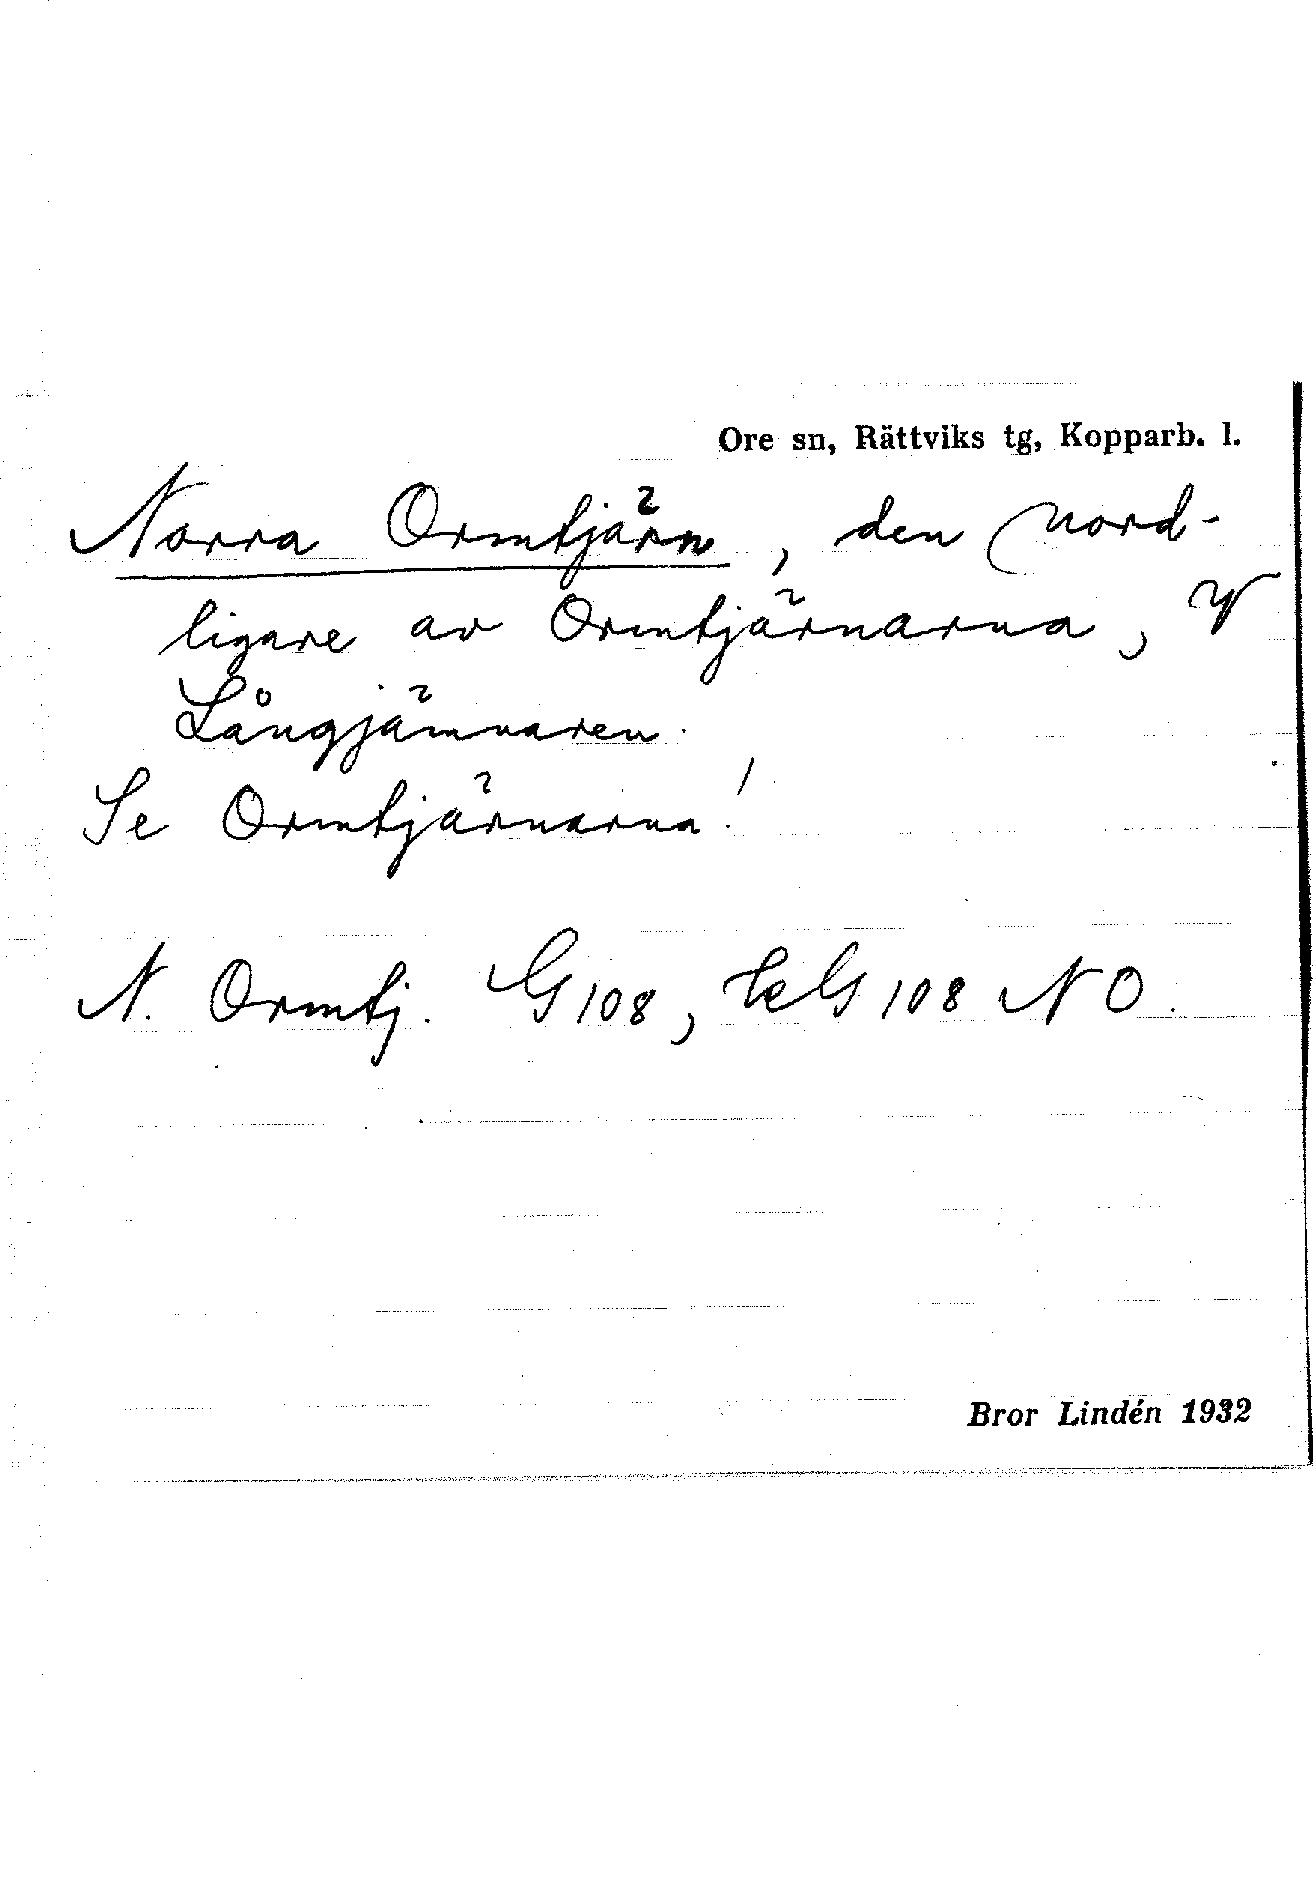 Ore sn, Rättviks tg, Kopparb. l.
Norra Ormtjärn, den nord-
ligare av Ormtjärnarna, V
Långjämnaren.
Se Ormtjärnarna!
N. Ormtj. G 108, G 108 NO.
Bror Lindén 1932